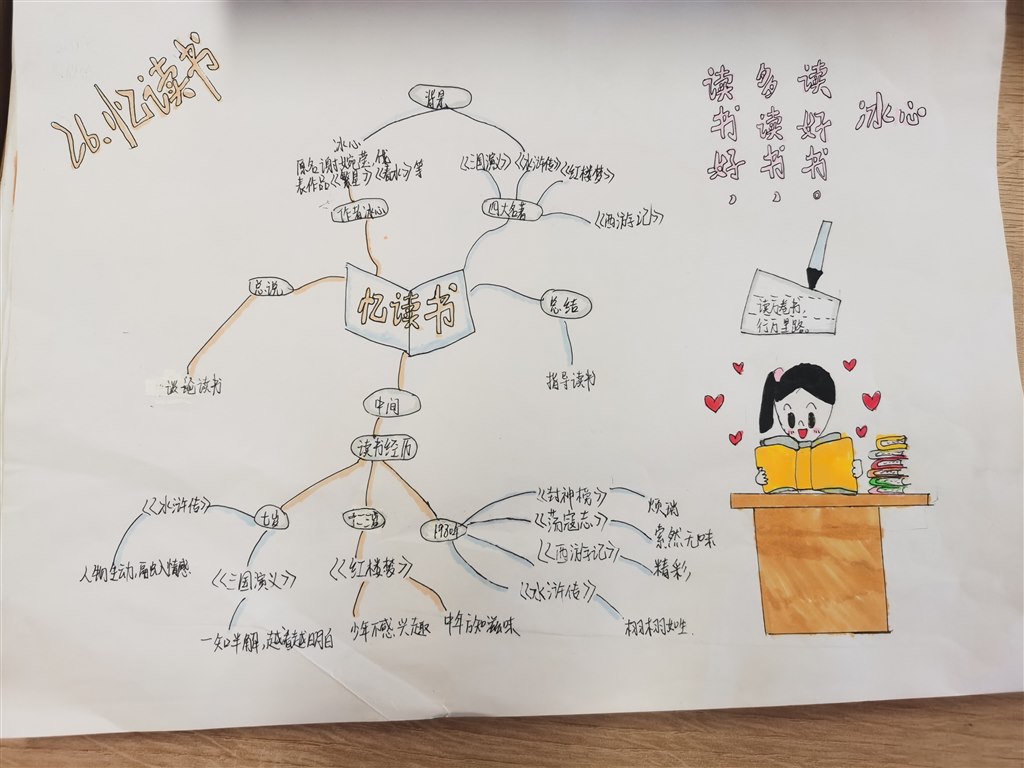 26.忆读书
读书好，
多读书，
读好书。
冰心
背景
冰心
原名谢婉莹,代
表作品《繁星》《春水》等
作者冰心
《三国演义》
《水浒传》
《红楼梦》
四大名著
《西游记》
忆读书
总说
谈论读书
总结
指导读书
读万卷书,
行万里路。
中间
读书经历
七岁
《水浒传》
人物生动,
《三国演义》
一知半解,越看越明白
十二三岁
《红楼梦》
少年不感兴趣
中年方知滋味
1980年
《封神榜》
烦琐
《荡寇志》
索然无味
《西游记》
精彩
《水浒传》
栩栩如生.